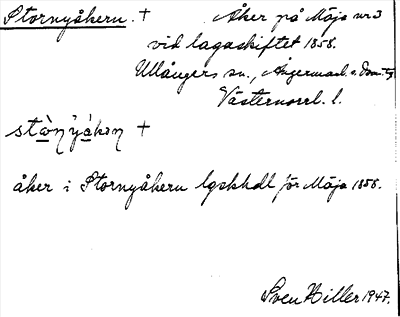 Stornyåkern. + Åker på Mäja nr 3
vid lagaskiftet 1858.
Ullångers sn., Ångermanl. s. Doms.
Västernorrl. l.
+
åker i Stornyåkern lgskhdl för Mäja 1858.
Sven Hiller 1947.